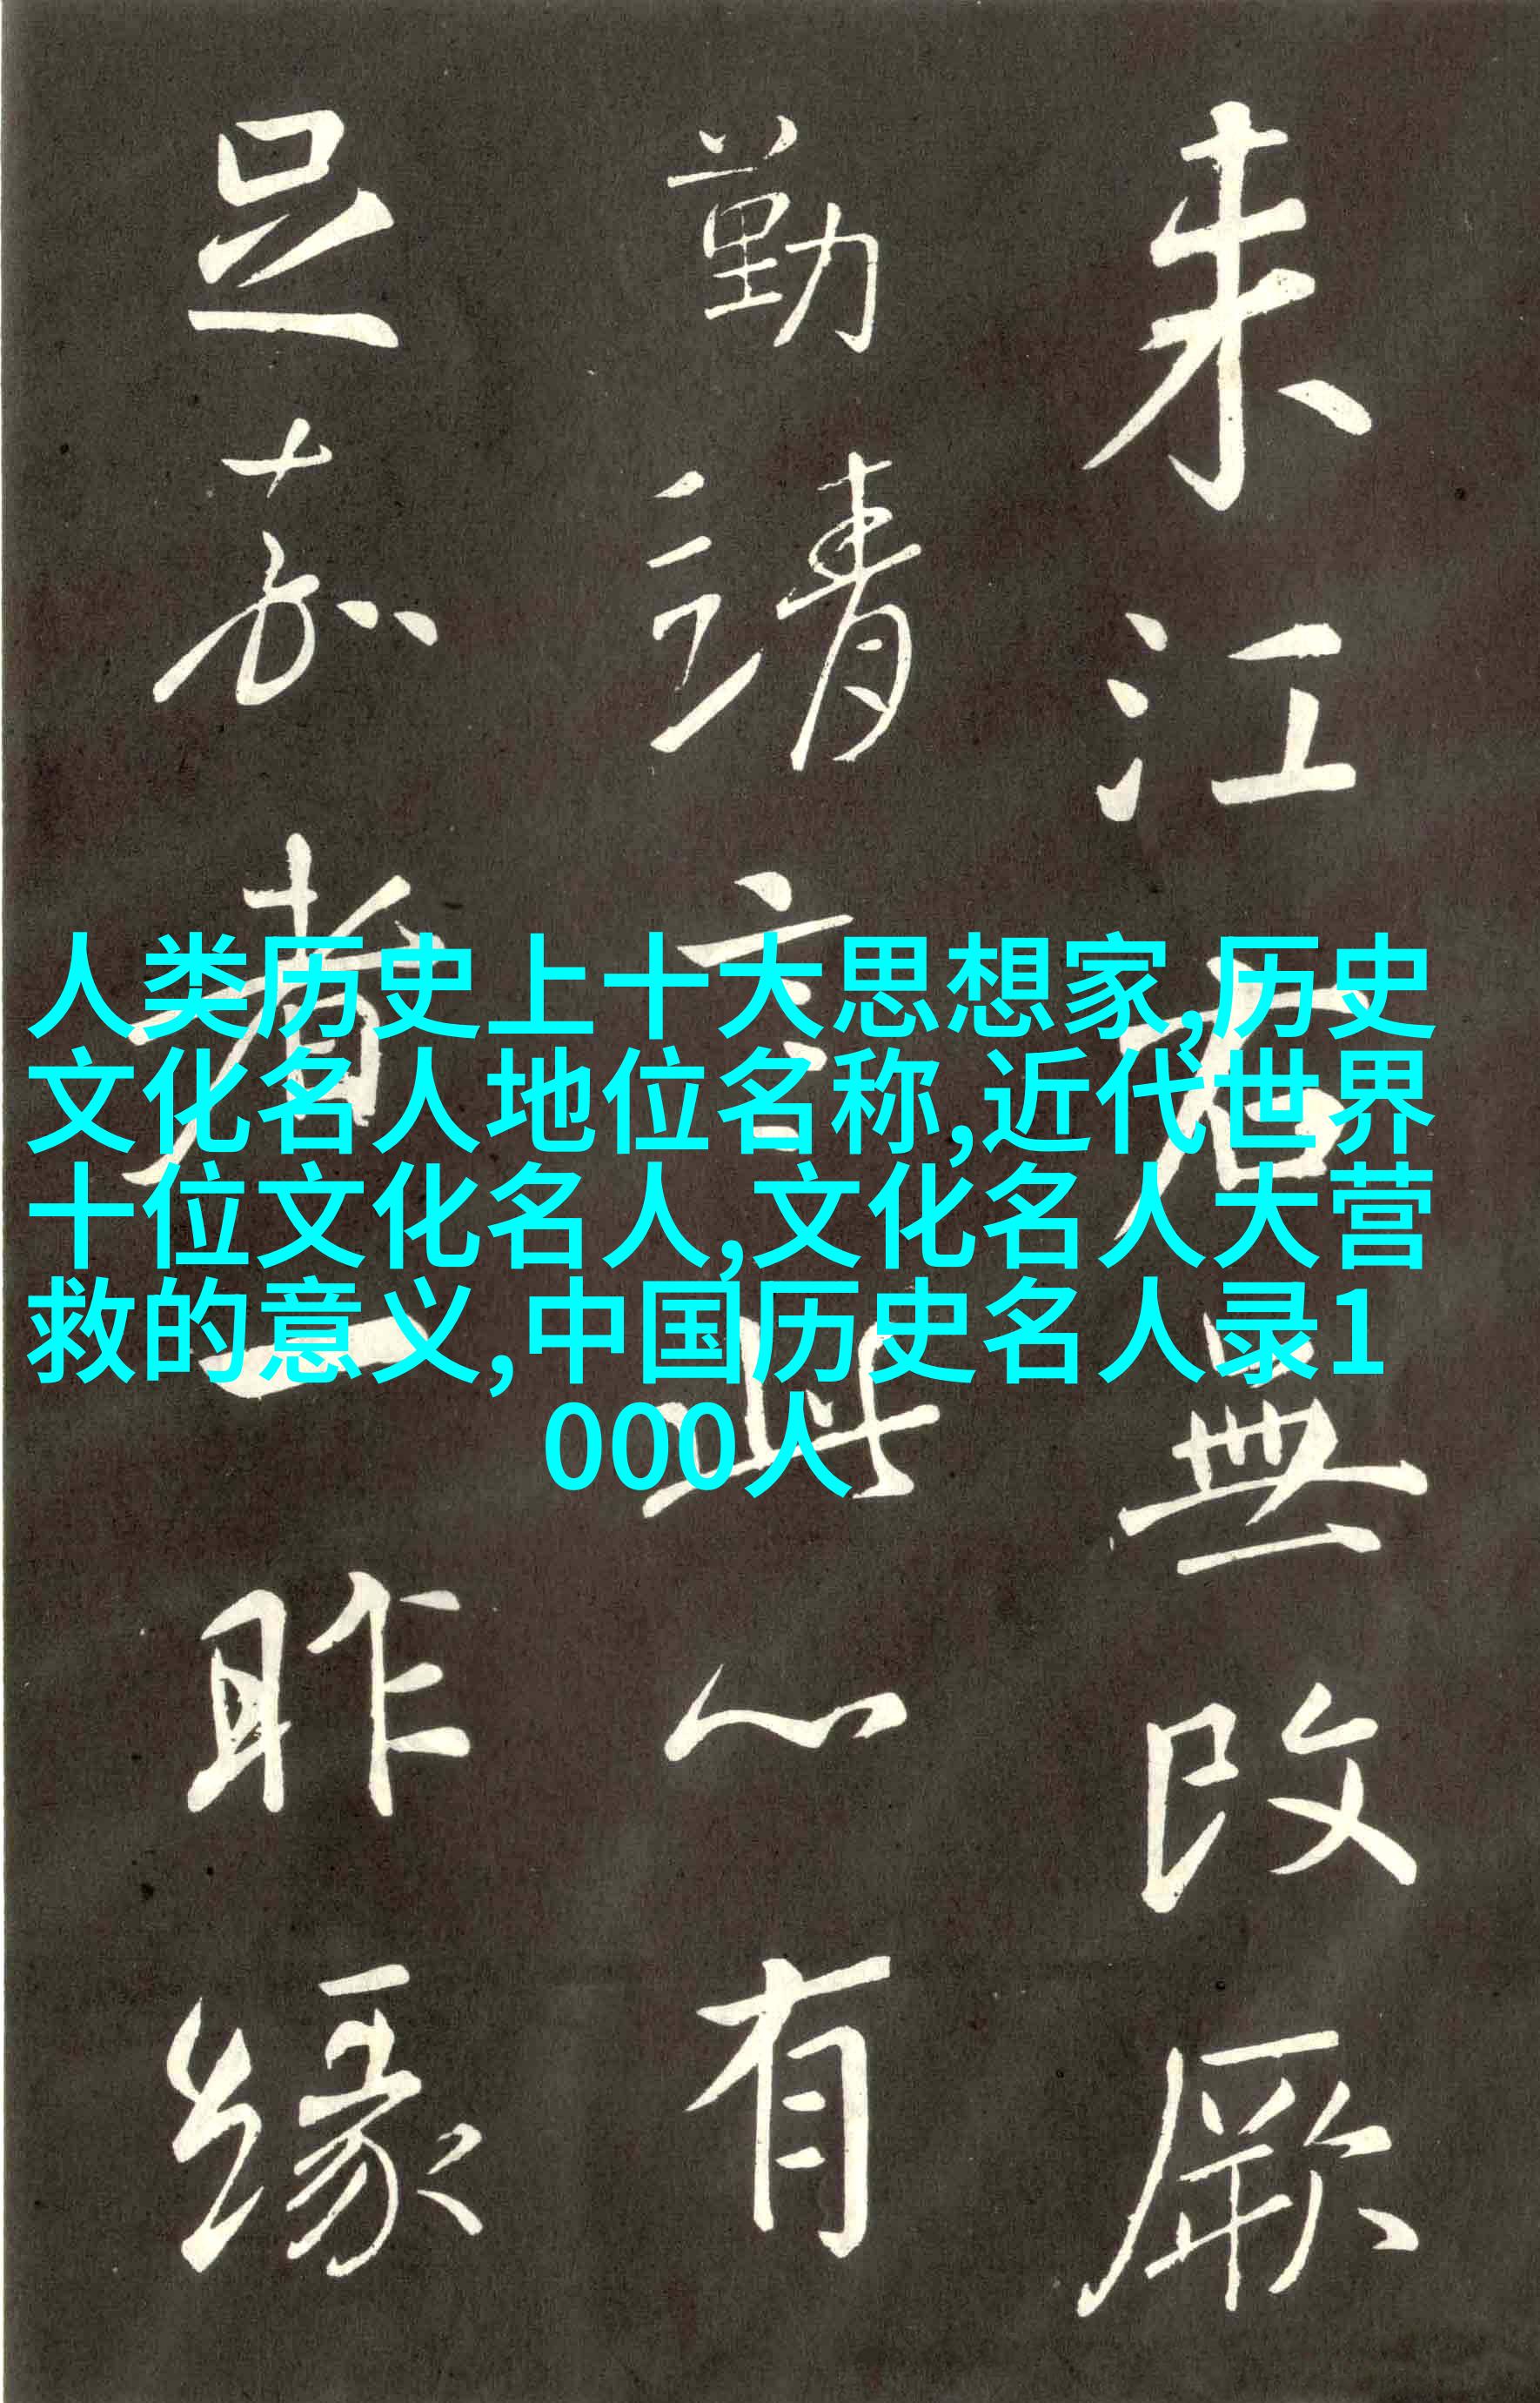 来江右無改厥
勤請言此心有
足嘉者一昨緣
人类历史上十大思想家,历史
文化名人地位名称,近代世界
十位文化名人,文化名人大营
救的意义,中国历史名人录1
000人